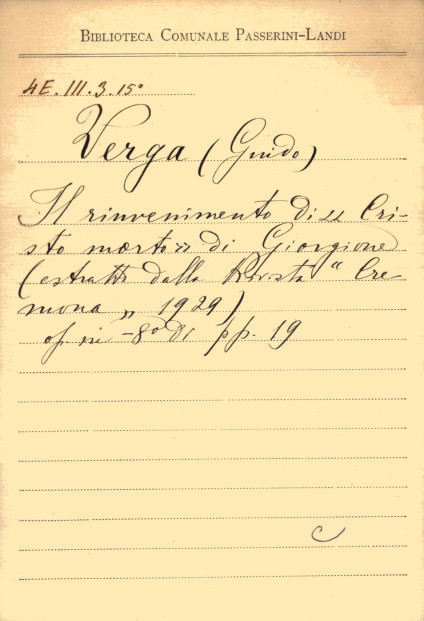 BIBLIOTECA COMUNALE PASSERINI-LANDI
4E. III. 3. 15º
Verga (Guido)
Il rinvenimento di « Cri-
sto morto » di Giorgione
(estratto dalla Rivista " Cre-
mona „ 1929)
op. in -8º di pp. 19
C